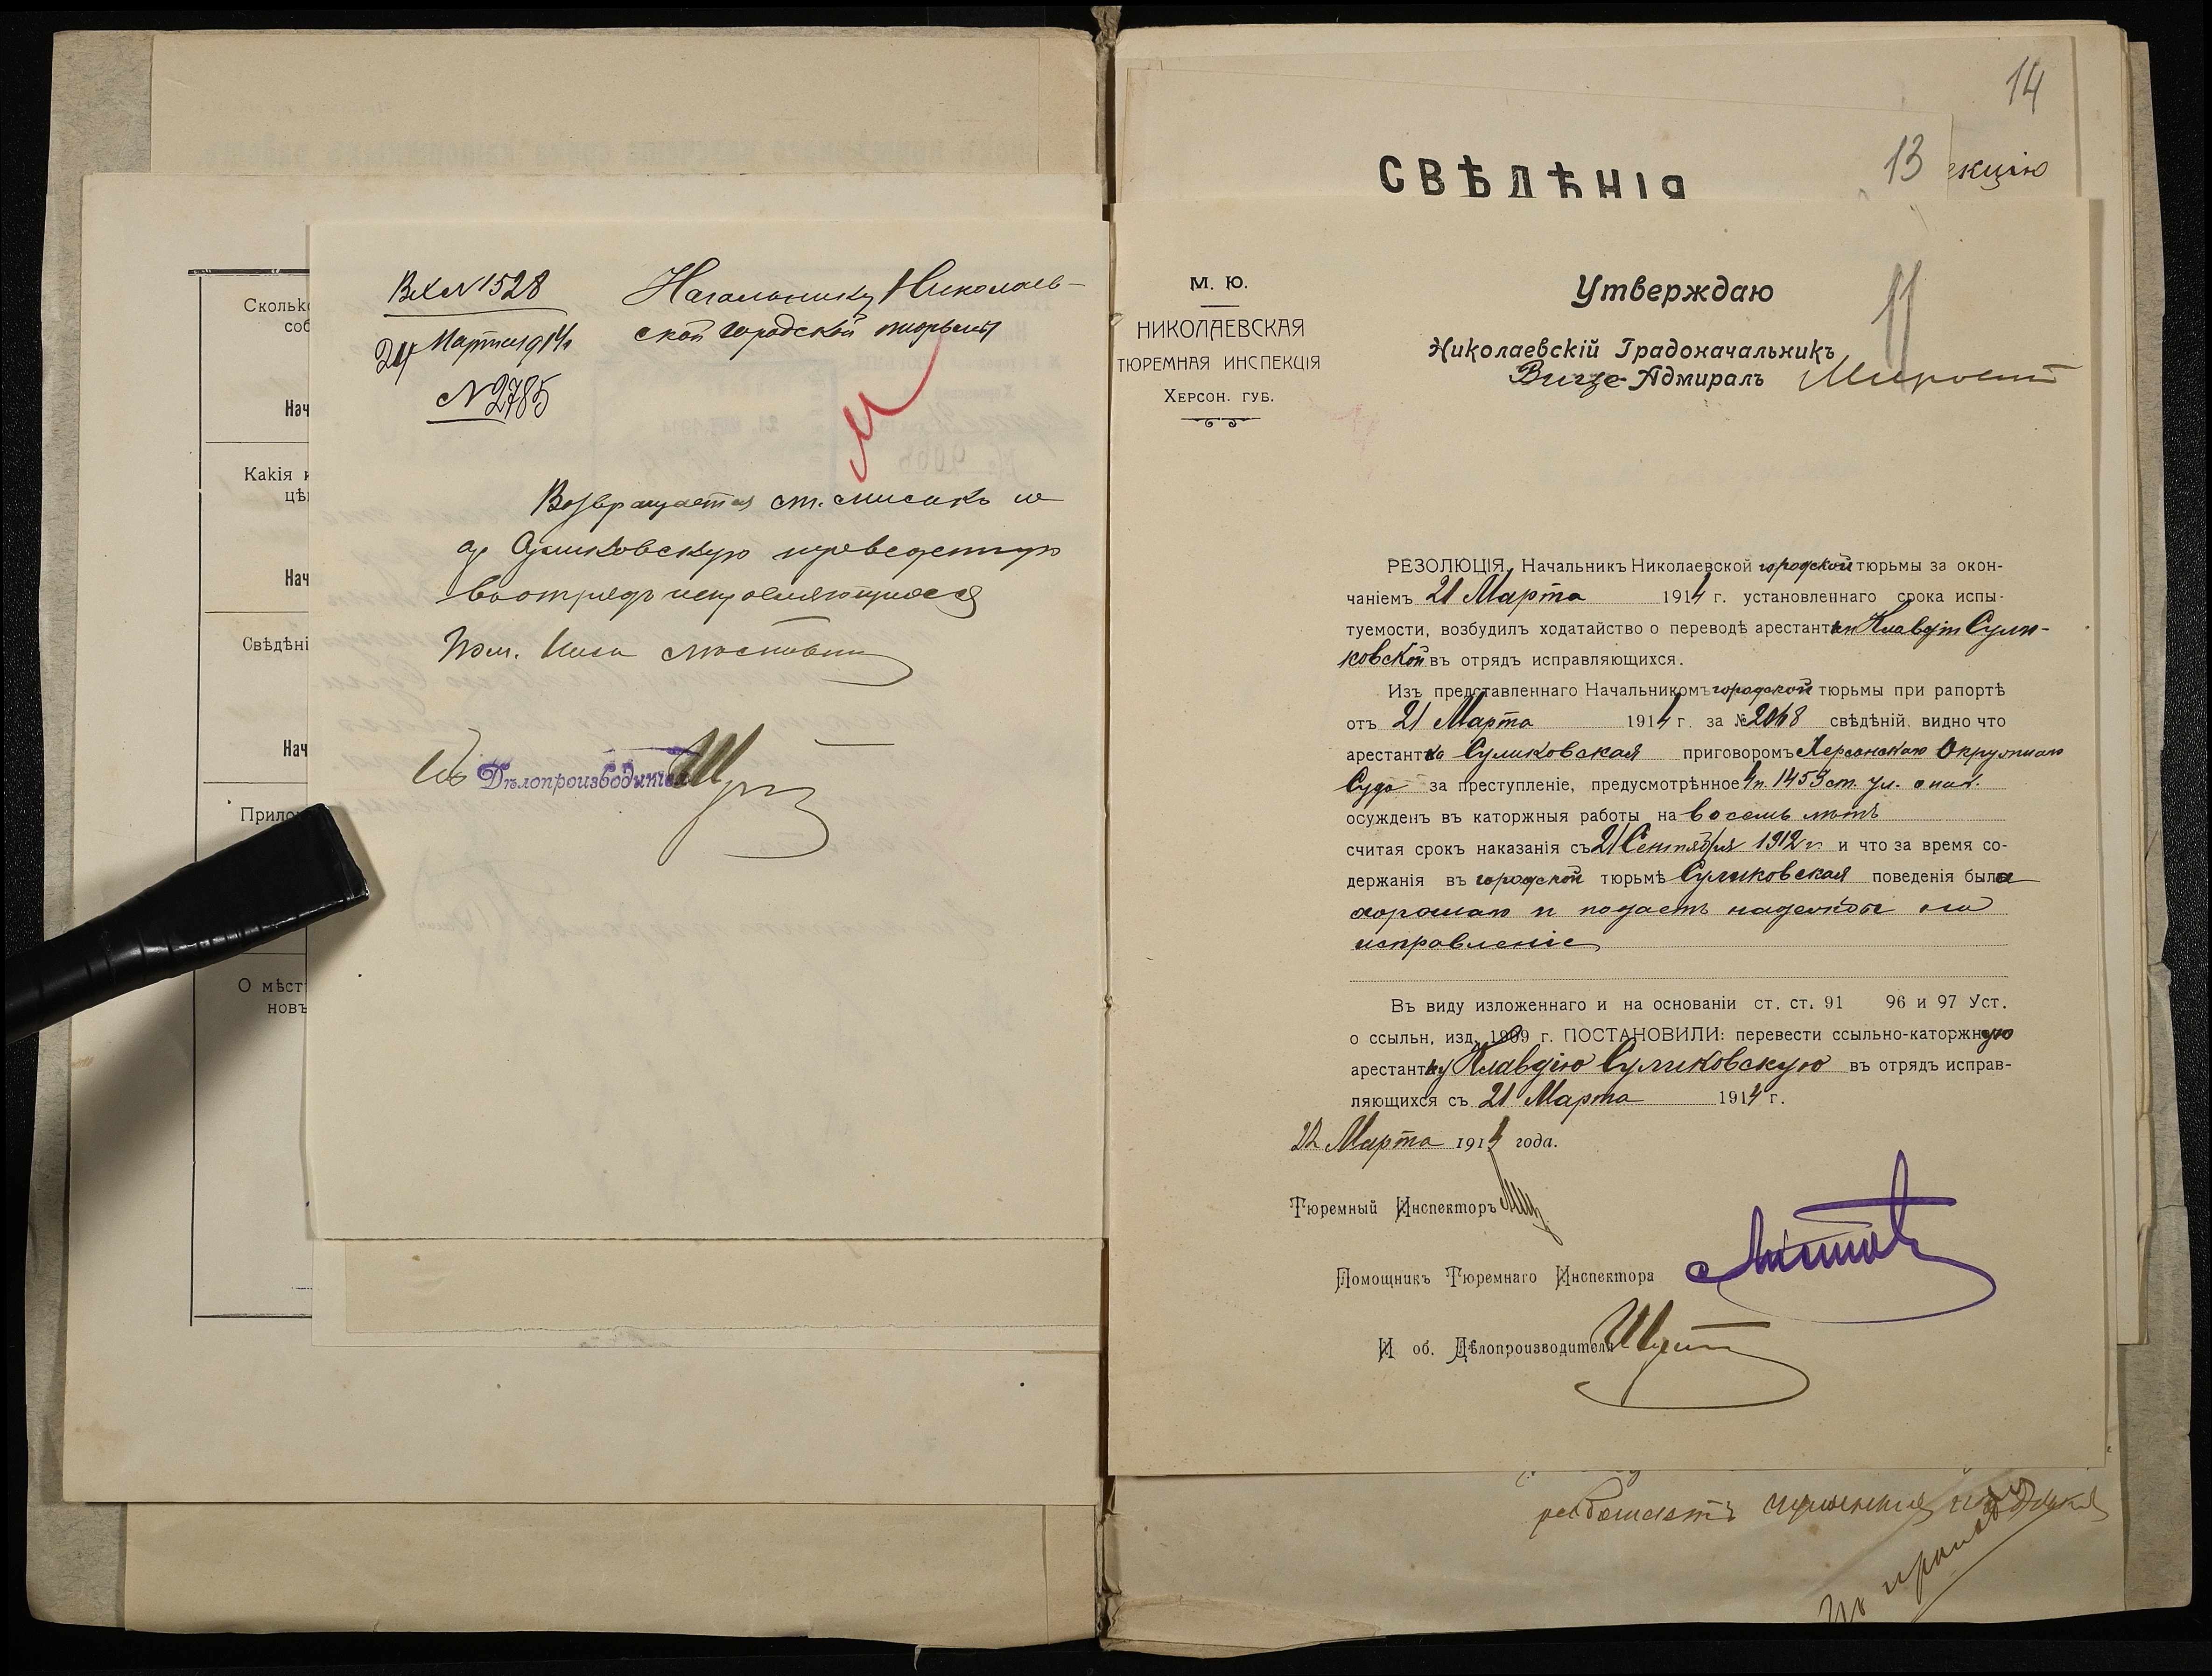 Вх № 1528
24 Марта 1914 г.
№ 2785
Начальнику Николаев-
ской городской тюрьмы
Возвращается ст. списокъ
Суликовскую переведенную
въ отрядъ исправляющихся
Пом. Инсп.
Дѣлопроизводитель
Сколько
соб
Нач
Какія
цѣ
Нач
Свѣдѣні
Нач
Прило
О мѣст
новъ
14
13
екцію
СВѢДѢНІЯ
11
М. Ю.
НИКОЛАЕВСКАЯ
ТЮРЕМНАЯ ИНСПЕКЦІЯ
ХЕРСОН. ГУБ.
Утверждаю
Николаевскій Градоначальникъ
Вице-Адмиралъ
РЕЗОЛЮЦІЯ. Начальникъ Николаевской городской тюрьмы за окон-
чаніемъ 21 Марта 1914 г. установленнаго срока испы-
туемости, возбудилъ ходатайство о переводѣ арестантки Клавдіи Сули-
ковской въ отрядъ исправляющихся.
Изъ представленнаго Начальникомъ городской тюрьмы при рапортѣ
отъ 21 Марта 1914 г. за № 2068 свѣдѣній, видно что
арестантка Суликовская приговоромъ Херсонскаго Окружнаго
Суда за преступленіе, предусмотрѣнное 4 п. 1453 ст. Ул. о нак.
осужденъ въ каторжныя работы на восемь лѣтъ
считая срокъ наказанія съ 21 Сентября 1912 г. и что за время со-
держанія въ городской тюрьмѣ Суликовская поведенія была
хорошаго и подаетъ надежды на
исправленіе
Въ виду изложеннаго и на основаніи ст. ст. 91 96 и 97 Уст.
о ссыльн. изд. 1909 г. ПОСТАНОВИЛИ: перевести ссыльно-каторжную
арестантку Клавдію Суликовскую въ отрядъ исправ-
ляющихся съ 21 Марта 1914 г.
22 Марта 1914 года.
Тюремный Инспекторъ
Помощникъ Тюремнаго Инспектора
И об. Дѣлопроизводителя